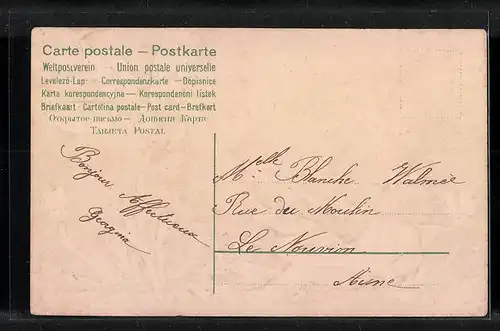 Carte postale – Postkarte
Weltpostverein – Union postale universelle
Levelező-Lap – Correspondenzkarte – Dopisnice
Karta korespondencyjna – Korespondenční lístek
Briefkaart – Cartolina postale – Post card – Brefkort
Открытое письмо – Дописна Карта
TARJETA POSTAL
Bonjour
Affectueux
Georgina
Melle Blanche Walmée
Rue du Moulin
Le Nouvion
Aisne